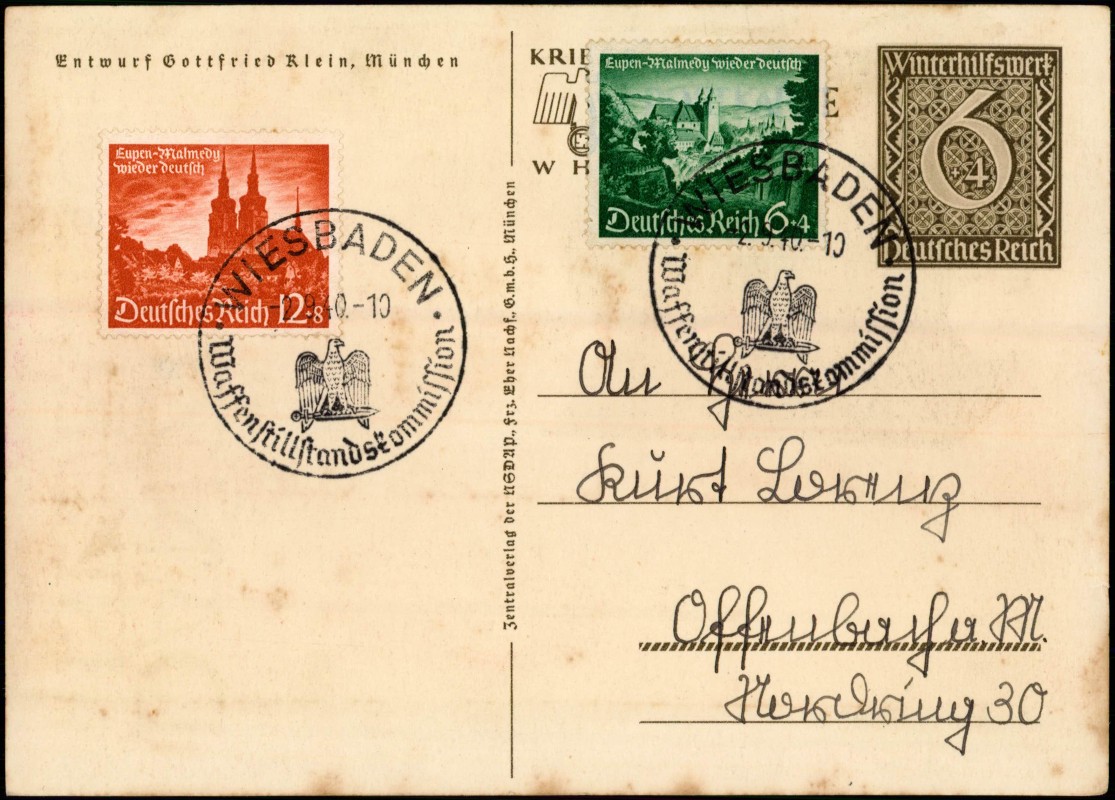 Entwurf Gottfried Klein, München
Eupen-Malmedy
wieder deutsch
Deutsches Reich 12+8
WIESBADEN
-2.9.40.-10
Waffenstillstandskommission
Zentralverlag der NSDAP., Frz. Eher Nachf., G.m.b.H., München
KRIE
E
W H
Eupen-Malmedy wieder deutsch
Deutsches Reich 6+4
WIESBADEN
-2.9.40.-10
Waffenstillstandskommission
Winterhilfswerk
6
+4
Deutsches Reich
An
Kurt Lorenz
Offenbach a. M.
Nordring 30